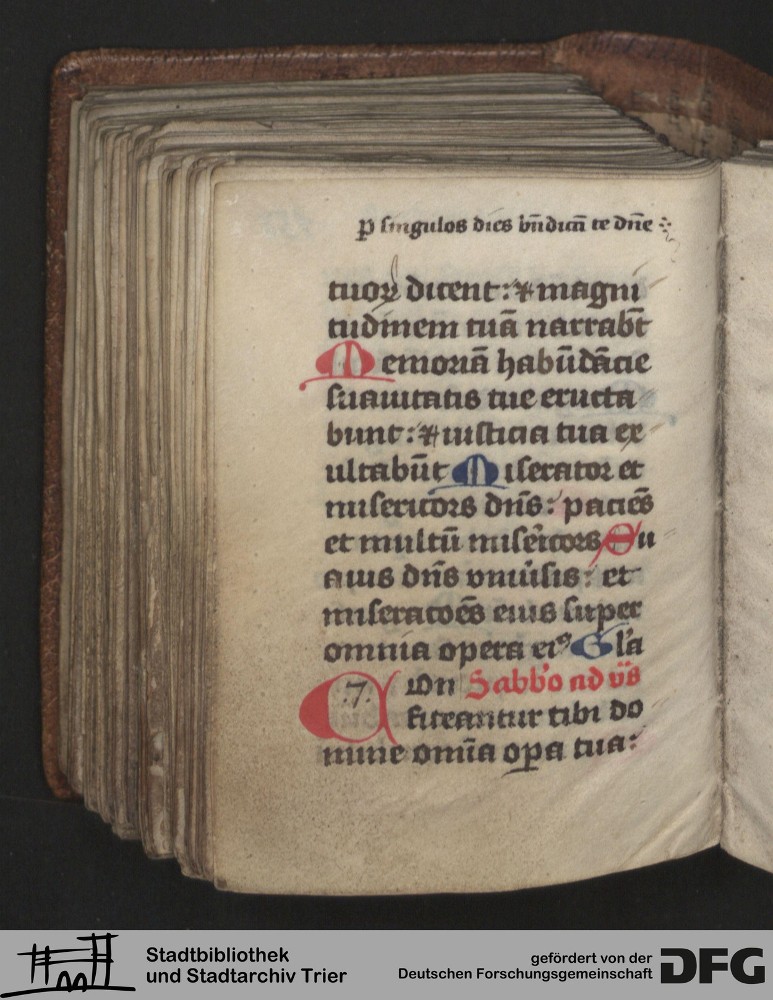 ꝑ singulos dies bn̄dicā te dn̄e
tuoꝝ dicent: ⁊ magni
tudinem tuā narrab̄t
Memoriā habūdācie
suauitatis tue eructa
bunt: ⁊ iusticia tua ex
ultabūt Miserator et
misericors dn̄s: paciēs
et multū mis̾icors Su
auis dn̄s vniu̾sis: et
miseracōēs eius super
omnia opera eiꝰ Gl̾a
.7. Con Sabb̾o ad vūs
fiteantur tibi do
mine om̄ia oꝑa tua:
Stadtbibliothek
und Stadtarchiv Trier
gefördert von der
Deutschen Forschungsgemeinschaft
DFG